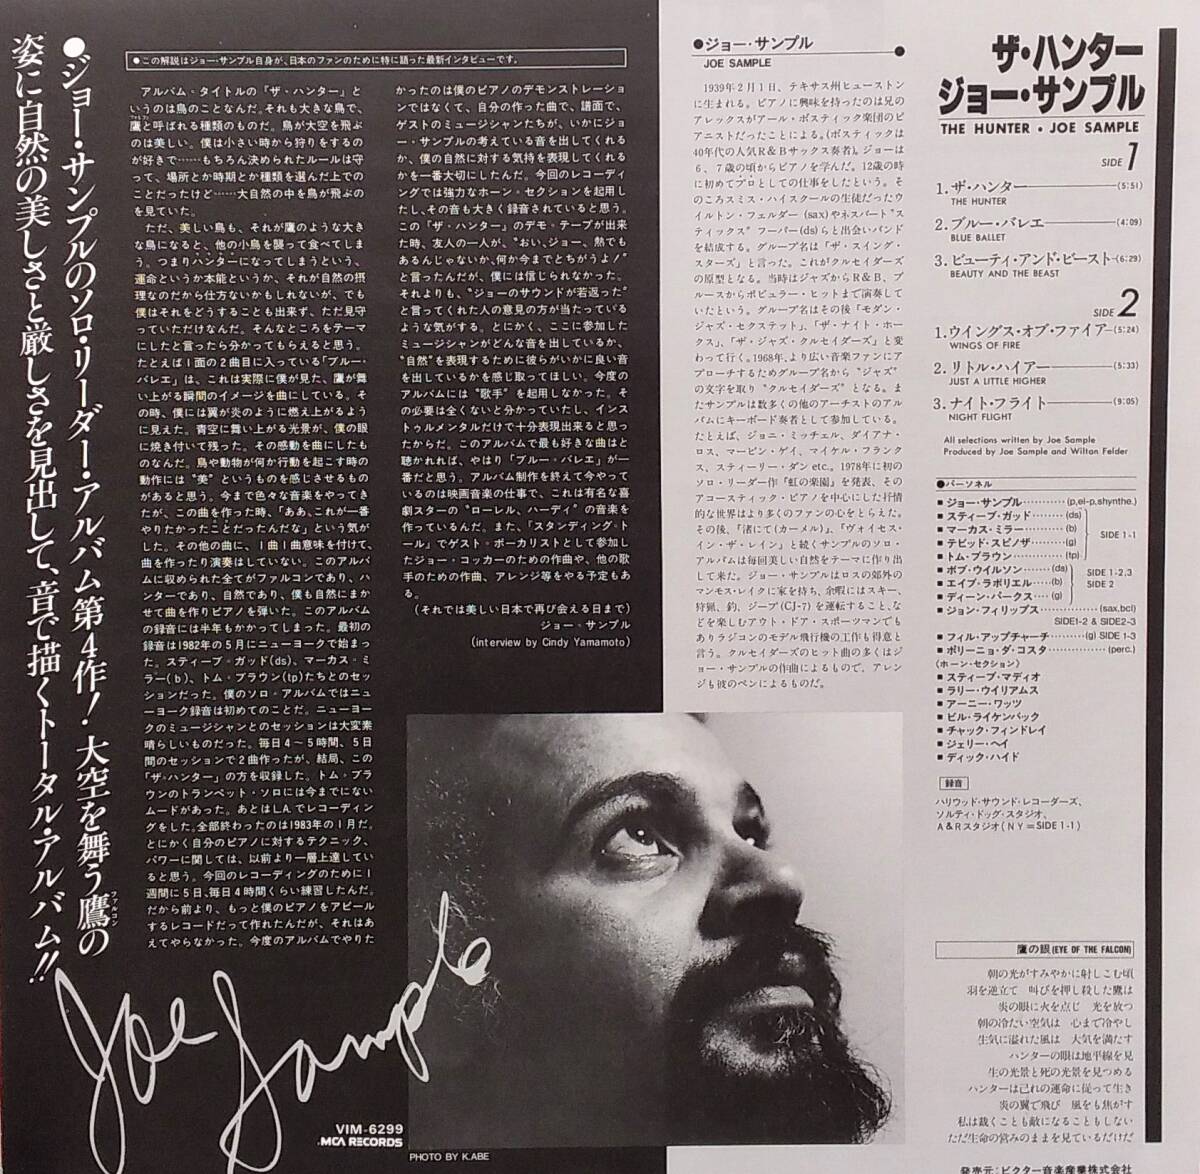 ●ジョー・サンプルのソロ・リーダー・アルバム第4作！大空を舞う鷹の
ファルコン
姿に自然の美しさと厳しさを見出して、音で描くトータル・アルバム!!
●この解説はジョー・サンプル自身が、日本のファンのために特に語った最新インタビューです。
アルバム・タイトルの「ザ・ハンター」と
いうのは鳥のことなんだ。それも大きな鳥で、
鷹と呼ばれる種類のものだ。鳥が大空を飛ぶ
のは美しい。僕は小さい時から狩りをするの
が好きで……もちろん決められたルールは守
って、場所とか時期とか種類を選んだ上での
ことだったけど……大自然の中を鳥が飛ぶの
を見ていた。
ただ、美しい鳥も、それが鷹のような大き
な鳥になると、他の小鳥を襲って食べてしま
う。つまりハンターになってしまうという、
運命というか本能というか、それが自然の摂
理なのだから仕方ないかもしれないが、でも
僕はそれをどうすることも出来ず、ただ見守
っていただけなんだ。そんなところをテーマ
にしたと言ったら分かってもらえると思う。
たとえば1面の2曲目に入っている「ブルー・
バレエ」は、これは実際に僕が見た、鷹が舞
い上がる瞬間のイメージを曲にしている。そ
の時、僕には翼が炎のように燃え上がるよう
に見えた。青空に舞い上がる光景が、僕の眼
に焼き付いて残った。その感動を曲にしたも
のなんだ。鳥や動物が何か行動を起こす時の
動作には“美”というものを感じさせるもの
があると思う。今まで色々な音楽をやってき
たが、この曲を作った時、「ああ、これが一番
やりたかったことだったんだな」という気が
した。その他の曲に、1曲1曲意味を付けて、
曲を作ったり演奏はしていない。このアルバ
ムに収められた全てがファルコンであり、ハ
ンターであり、自然であり、僕も自然にまか
せて曲を作りピアノを弾いた。このアルバム
の録音には半年もかかってしまった。最初の
録音は1982年の5月にニューヨークで始まっ
た。スティーブ・ガッド(ds)、マーカス・ミ
ラー(b)、トム・ブラウン(tp)たちとのセッ
ションだった。僕のソロ・アルバムではニュ
ーヨーク録音は初めてのことだ。ニューヨー
クのミュージシャンとのセッションは大変素
晴らしいものだった。毎日4〜5時間、5日
間のセッションで2曲作ったが、結局、この
「ザ・ハンター」の方を収録した。トム・ブラ
ウンのトランペット・ソロには今までにない
ムードがあった。あとはL.A.でレコーディン
グをした。全部終わったのは1983年の1月だ。
とにかく自分のピアノに対するテクニック、
パワーに関しては、以前より一層上達してい
ると思う。今回のレコーディングのために1
週間に5日、毎日4時間くらい練習したんだ。
だから前より、もっと僕のピアノをアピール
するレコードだって作れたんだが、それはあ
えてやらなかった。今度のアルバムでやりた
かったのは僕のピアノのデモンストレーショ
ンではなくて、自分の作った曲で、譜面で、
ゲストのミュージシャンたちが、いかにジョ
ー・サンプルの考えている音を出してくれる
か、僕の自然に対する気持を表現してくれる
かを一番大切にしたんだ。今回のレコーディ
ングでは強力なホーン・セクションを起用し
たし、その音も大きく録音されていると思う。
この「ザ・ハンター」のデモ・テープが出来
た時、友人の一人が、“おい、ジョー、熱でも
あるんじゃないか、何か今までとちがうよ！”
と言ったんだが、僕には信じられなかった。
それよりも、“ジョーのサウンドが若返った”
と言ってくれた人の意見の方が当たっている
ような気がする。とにかく、ここに参加した
ミュージシャンがどんな音を出しているか、
“自然”を表現するために彼らがいかに良い音
を出しているかを感じ取ってほしい。今度の
アルバムには“歌手”を起用しなかった。そ
の必要は全くないと分かっていたし、インス
トゥルメンタルだけで十分表現出来ると思っ
たからだ。このアルバムで最も好きな曲はと
聴かれれば、やはり「ブルー・バレエ」が一
番だと思う。アルバム制作を終えて今やって
いるのは映画音楽の仕事で、これは有名な喜
劇スターの“ローレル、ハーディ”の音楽を
作っているんだ。また、「スタンディング・ト
ール」でゲスト・ボーカリストとして参加し
たジョー・コッカーのための作曲や、他の歌
手のための作曲、アレンジ等をやる予定もあ
る。
（それでは美しい日本で再び会える日まで）
ジョー・サンプル
(interview by Cindy Yamamoto)
●ジョー・サンプル
JOE SAMPLE
1939年2月1日、テキサス州ヒューストン
に生まれる。ピアノに興味を持ったのは兄の
アレックスがアール・ボスティック楽団のピ
アニストだったことによる。（ボスティックは
40年代の人気R&Bサックス奏者）。ジョーは
6、7歳の頃からピアノを学んだ。12歳の時
に初めてプロとしての仕事をしたという。そ
のころスミス・ハイスクールの生徒だったウ
イルトン・フェルダー(sax)やネスバート“ス
ティックス”フーパー(ds)らと出会いバンド
を結成する。グループ名は「ザ・スイング・
スターズ」と言った。これがクルセイダーズ
の原型となる。当時はジャズからR&B、ブ
ルースからポピュラー・ヒットまで演奏して
いたという。グループ名はその後「モダン・
ジャズ・セクステット」、「ザ・ナイト・ホー
クス」、「ザ・ジャズ・クルセイダーズ」と変
わって行く。1968年、より広い音楽ファンにア
プローチするためグループ名から“ジャズ”
の文字を取り“クルセイダーズ”となる。ま
たサンプルは数多くの他のアーチストのアル
バムにキーボード奏者として参加している。
たとえば、ジョニ・ミッチェル、ダイアナ・
ロス、マービン・ゲイ、マイケル・フランク
ス、スティーリー・ダン etc.。1978年に初の
ソロ・リーダー作『虹の楽園』を発表、その
アコースティック・ピアノを中心にした抒情
的な世界はより多くのファンの心をとらえた。
その後、『渚にて（カーメル）』、『ヴォイセス・
イン・ザ・レイン』と続くサンプルのソロ・
アルバムは毎回美しい自然をテーマに作り出
して来た。ジョー・サンプルはロスの郊外の
マンモス・レイクに家を持ち、余暇にはスキー、
狩猟、釣、ジープ(CJ-7)を運転すること、な
どを楽しむアウト・ドア・スポーツマンでも
ありラジコンのモデル飛行機の工作も得意と
言う。クルセイダーズのヒット曲の多くはジ
ョー・サンプルの作曲によるもので、アレン
ジも彼のペンによるものだ。
ザ・ハンター
ジョー・サンプル
THE HUNTER・JOE SAMPLE
SIDE 1
1. ザ・ハンター (5:51)
THE HUNTER
2. ブルー・バレエ (4:09)
BLUE BALLET
3. ビューティ・アンド・ビースト (6:29)
BEAUTY AND THE BEAST
SIDE 2
1. ウイングス・オブ・ファイアー (5:24)
WINGS OF FIRE
2. リトル・ハイアー (5:33)
JUST A LITTLE HIGHER
3. ナイト・フライト (9:05)
NIGHT FLIGHT
All selections written by Joe Sample
Produced by Joe Sample and Wilton Felder
●パーソネル
■ ジョー・サンプル…………(p,el-p,shynthe.)
■ スティーブ・ガッド………(ds)
■ マーカス・ミラー…………(b)
■ デビッド・スピノザ………(g)
■ トム・ブラウン……………(tp)
SIDE 1-1
■ ボブ・ウイルソン…………(ds)
■ エイブ・ラボリエル………(b)
■ ディーン・パークス………(g)
SIDE 1-2,3
SIDE 2
■ ジョン・フィリップス……………(sax,bcl)
SIDE1-2 & SIDE2-3
■ フィル・アップチャーチ…………(g) SIDE 1-3
■ ポリーニョ・ダ・コスタ……………(perc.)
（ホーン・セクション）
■ スティーブ・マディオ
■ ラリー・ウイリアムス
■ アーニー・ワッツ
■ ビル・ライケンバック
■ チャック・フィンドレイ
■ ジェリー・ヘイ
■ ディック・ハイド
録音
ハリウッド・サウンド・レコーダーズ、
ソルティ・ドッグ・スタジオ、
A&Rスタジオ(NY=SIDE 1-1)
鷹の眼(EYE OF THE FALCON)
朝の光がすみやかに射しこむ頃
羽を逆立て 叫びを押し殺した鷹は
炎の眼に火を点じ 光を放つ
朝の冷たい空気は 心まで冷やし
生気に溢れた風は 大気を満たす
ハンターの眼は地平線を見
生の光景と死の光景を見つめる
ハンターは己れの運命に従って生き
炎の翼で飛び 風をも焦がす
私は裁くことも敵になることもしない
ただ生命の営みのままを見ているだけだ
Joe Sample
VIM-6299
MCA RECORDS
PHOTO BY K.ABE
発売元：ビクター音楽産業株式会社